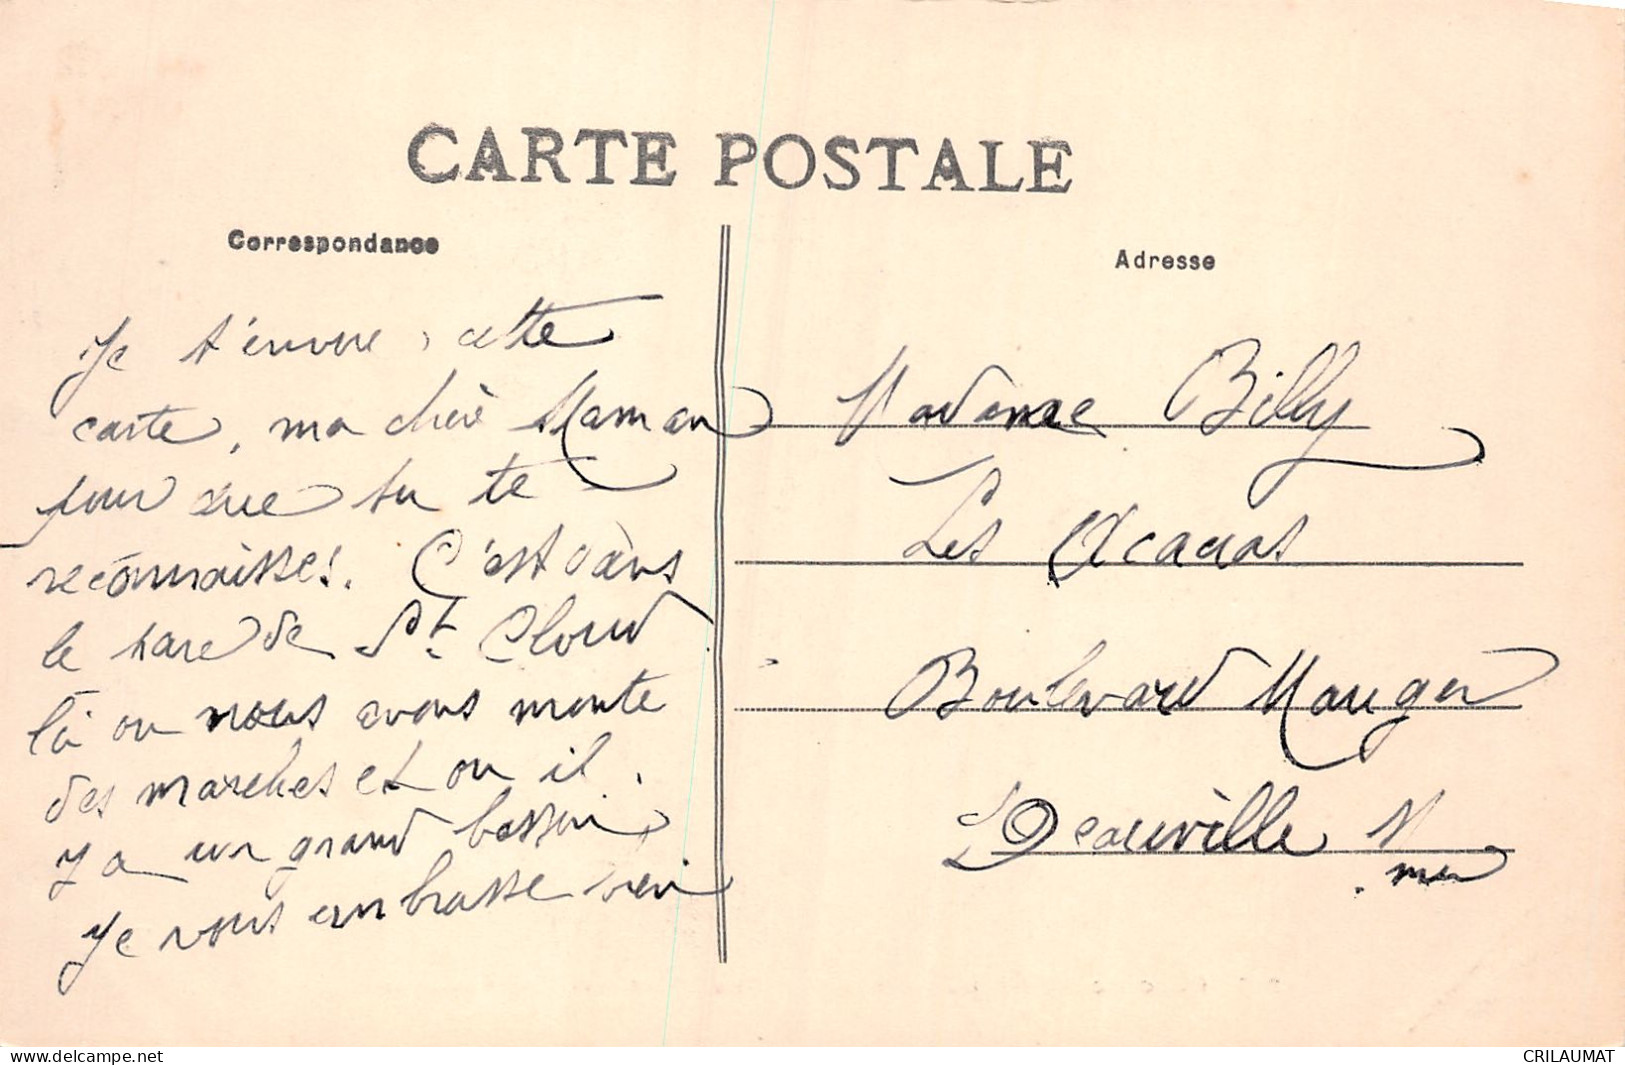 CARTE POSTALE
Correspondance
Adresse
Je t'envoie cette
carte, ma chère Maman
pour que tu te
reconnaisses. C'est dans
le parc de St Cloud
là ou nous avons monte
des marches et ou il
y a un grand bassin
Je vous embrasse bien
Madame Billy
Les
Boulevard Mauger
Deauville s/
mer
www.delcampe.net
CRILAUMAT